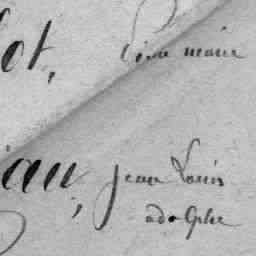 ot,
iau, jean Louis
adolphe